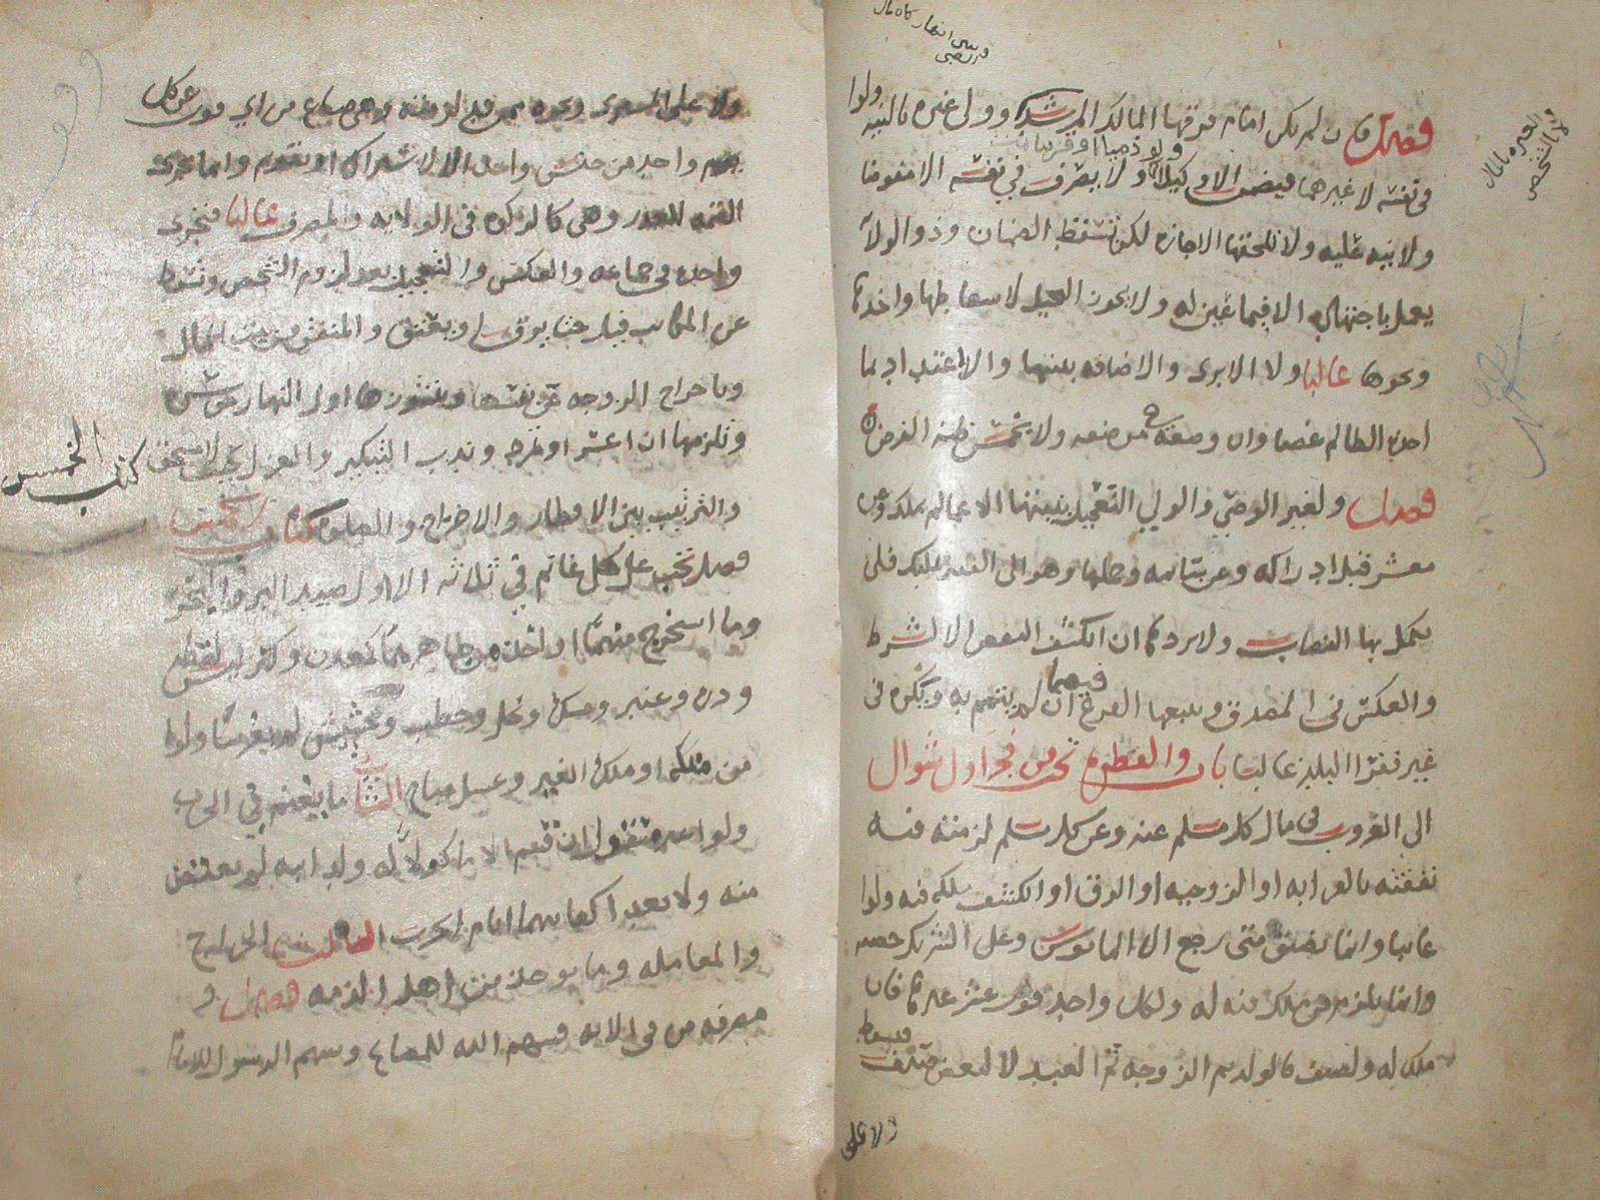 فصل فإن لم يكن إمام فرقها المالك المرشد وولي غيره بالنية ولو
في نفسه لا غيرهما فيضمن إلا وكيلا ولا يصرف في نفسه إلا مفوضا
ولا نية عليه ولا تلحقها الإجازة لكن تسقط الضمان وذو الولاية
يعمل باجتهاده إلا فيما عين له ولا يجوز التحيل لإسقاطها وأخذها
ونحوها غالبا ولا الإبراء والإضافة بنيتها ولا الاعتداد بما
أخذه الظالم غصبا وإن وضعه في موضعه ولا بخمس ظنه الفرض
فصل ولغير الوصي والولي التعجيل بنيتها إلا عما لم يملك وعن
معشر قبل إدراكه وعن سائمة وحملها وهو إلى الفقير تمليك فلا
يكمل بها النصاب ولا يردها إن انكشف النقص إلا لشرط
والعكس في المصدق ويتبعها الفرع فيهما إن لم يتمم به وتكره في
غير فقراء البلد غالبا باب والفطرة تجب من فجر أول شوال
إلى الغروب في مال كل مسلم عنه وعن كل مسلم لزمته فيه
نفقته بالقرابة أو الزوجية أو الرق أو انكشف ملكه فيه ولو
غائبا وإنما تضيق متى رجع إلا المأيوس وعلى الشريك حصته
وإنما تلزم من ملك فيه له ولكل واحد قوت عشر غيرها فإن
ملك له ولصنف فالولد ثم الزوجة ثم العبد لا لبعض صنف فيسقط
ولا على
ولا على المشتري ونحوه ممن قد لزمته وهي صاع من أي قوت عن كل
واحد من جنس واحد إلا لاشتراك أو تقويم وإنما تجزئ
القيمة للعذر وهي كالزكاة في الولاية والمصرف غالبا فتجزئ
واحدة في جماعة والعكس والتعجيل بعد لزوم الشخص وتسقط
عن المكاتب قيل حتى يرق أو يعتق والمنفق من بيت المال
وبإخراج الزوجة عن نفسها وبنشوزها أول النهار موسرة
وتلزمها إن أعسر أو تمرد وندب التبكير والعزل حيث لا مستحق
والترتيب بين الإفطار والإخراج والصلاة كتاب الخمس
كتاب الخمس
فصل يجب على كل غانم في ثلاثة الأول صيد البر والبحر
وما استخرج منهما أو أخذ من ظاهرهما كمعدن وكنز ليس لقطة
ودرة وعنبر ومسك ونحل وحطب وحشيش لم يغرسا ولو
من ملكه أو ملك الغير وعسل مباح الثاني ما يغنم في الحرب
ولو غير منقول إن قسم إلا مأكولا له ولدابته لم يعتض
منه ولا يعد كفايتهما أيام الحرب الثالث الخراج
والمعاملة وما يؤخذ من أهل الذمة فصل و
مصرفه من في الآية فسهم الله للمصالح وسهم الرسول للإمام